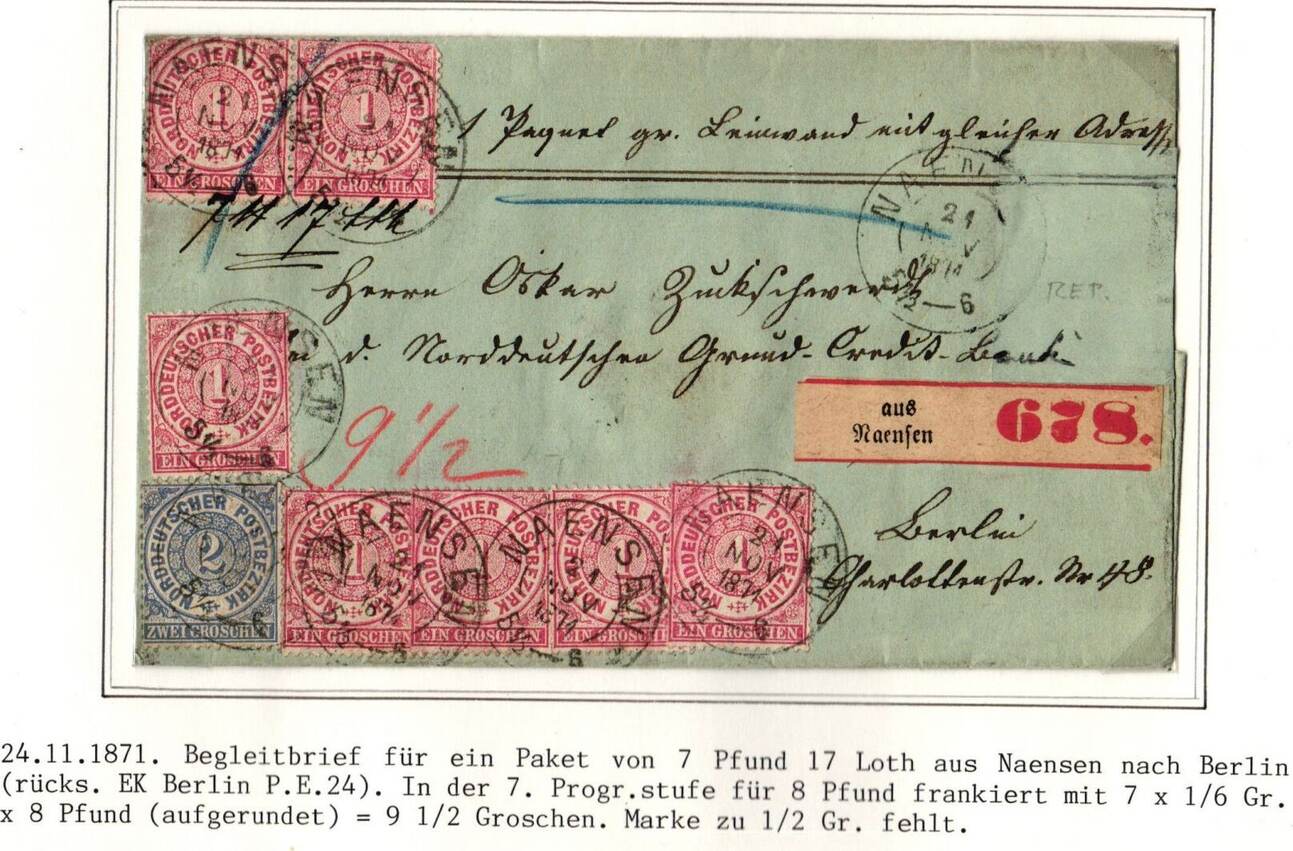 NORDDEUTSCHER POSTBEZIRK
1
EIN GROSCHEN
NORDDEUTSCHER POSTBEZIRK
1
EIN GROSCHEN
1 Paquet gr. Leinwand mit gleicher Adresse
NAEN
21
1871
5½—6
7 ℔ 17 Lth
Herrn Oskar Zuckschwerdt
REP.
d. Norddeutschen Grund-Credit-Bank
NORDDEUTSCHER POSTBEZIRK
1
EIN GROSCHEN
9 1/2
aus
Naensen
678.
NORDDEUTSCHER POSTBEZIRK
2
ZWEI GROSCHEN
EIN GROSCHEN
EIN GROSCHEN
EIN GROSCHEN
NORDDEUTSCHER POSTBEZIRK
1
EIN GROSCHEN
NAENSEN
21
NOV
1871
5½ 6
NAENSEN
21
NOV
1871
5½ 6
NAENSEN
21
NOV
1871
5½ 6
Berlin
Charlottenstr. Nr 48.
24.11.1871. Begleitbrief für ein Paket von 7 Pfund 17 Loth aus Naensen nach Berlin
(rücks. EK Berlin P.E.24). In der 7. Progr.stufe für 8 Pfund frankiert mit 7 x 1/6 Gr.
x 8 Pfund (aufgerundet) = 9 1/2 Groschen. Marke zu 1/2 Gr. fehlt.